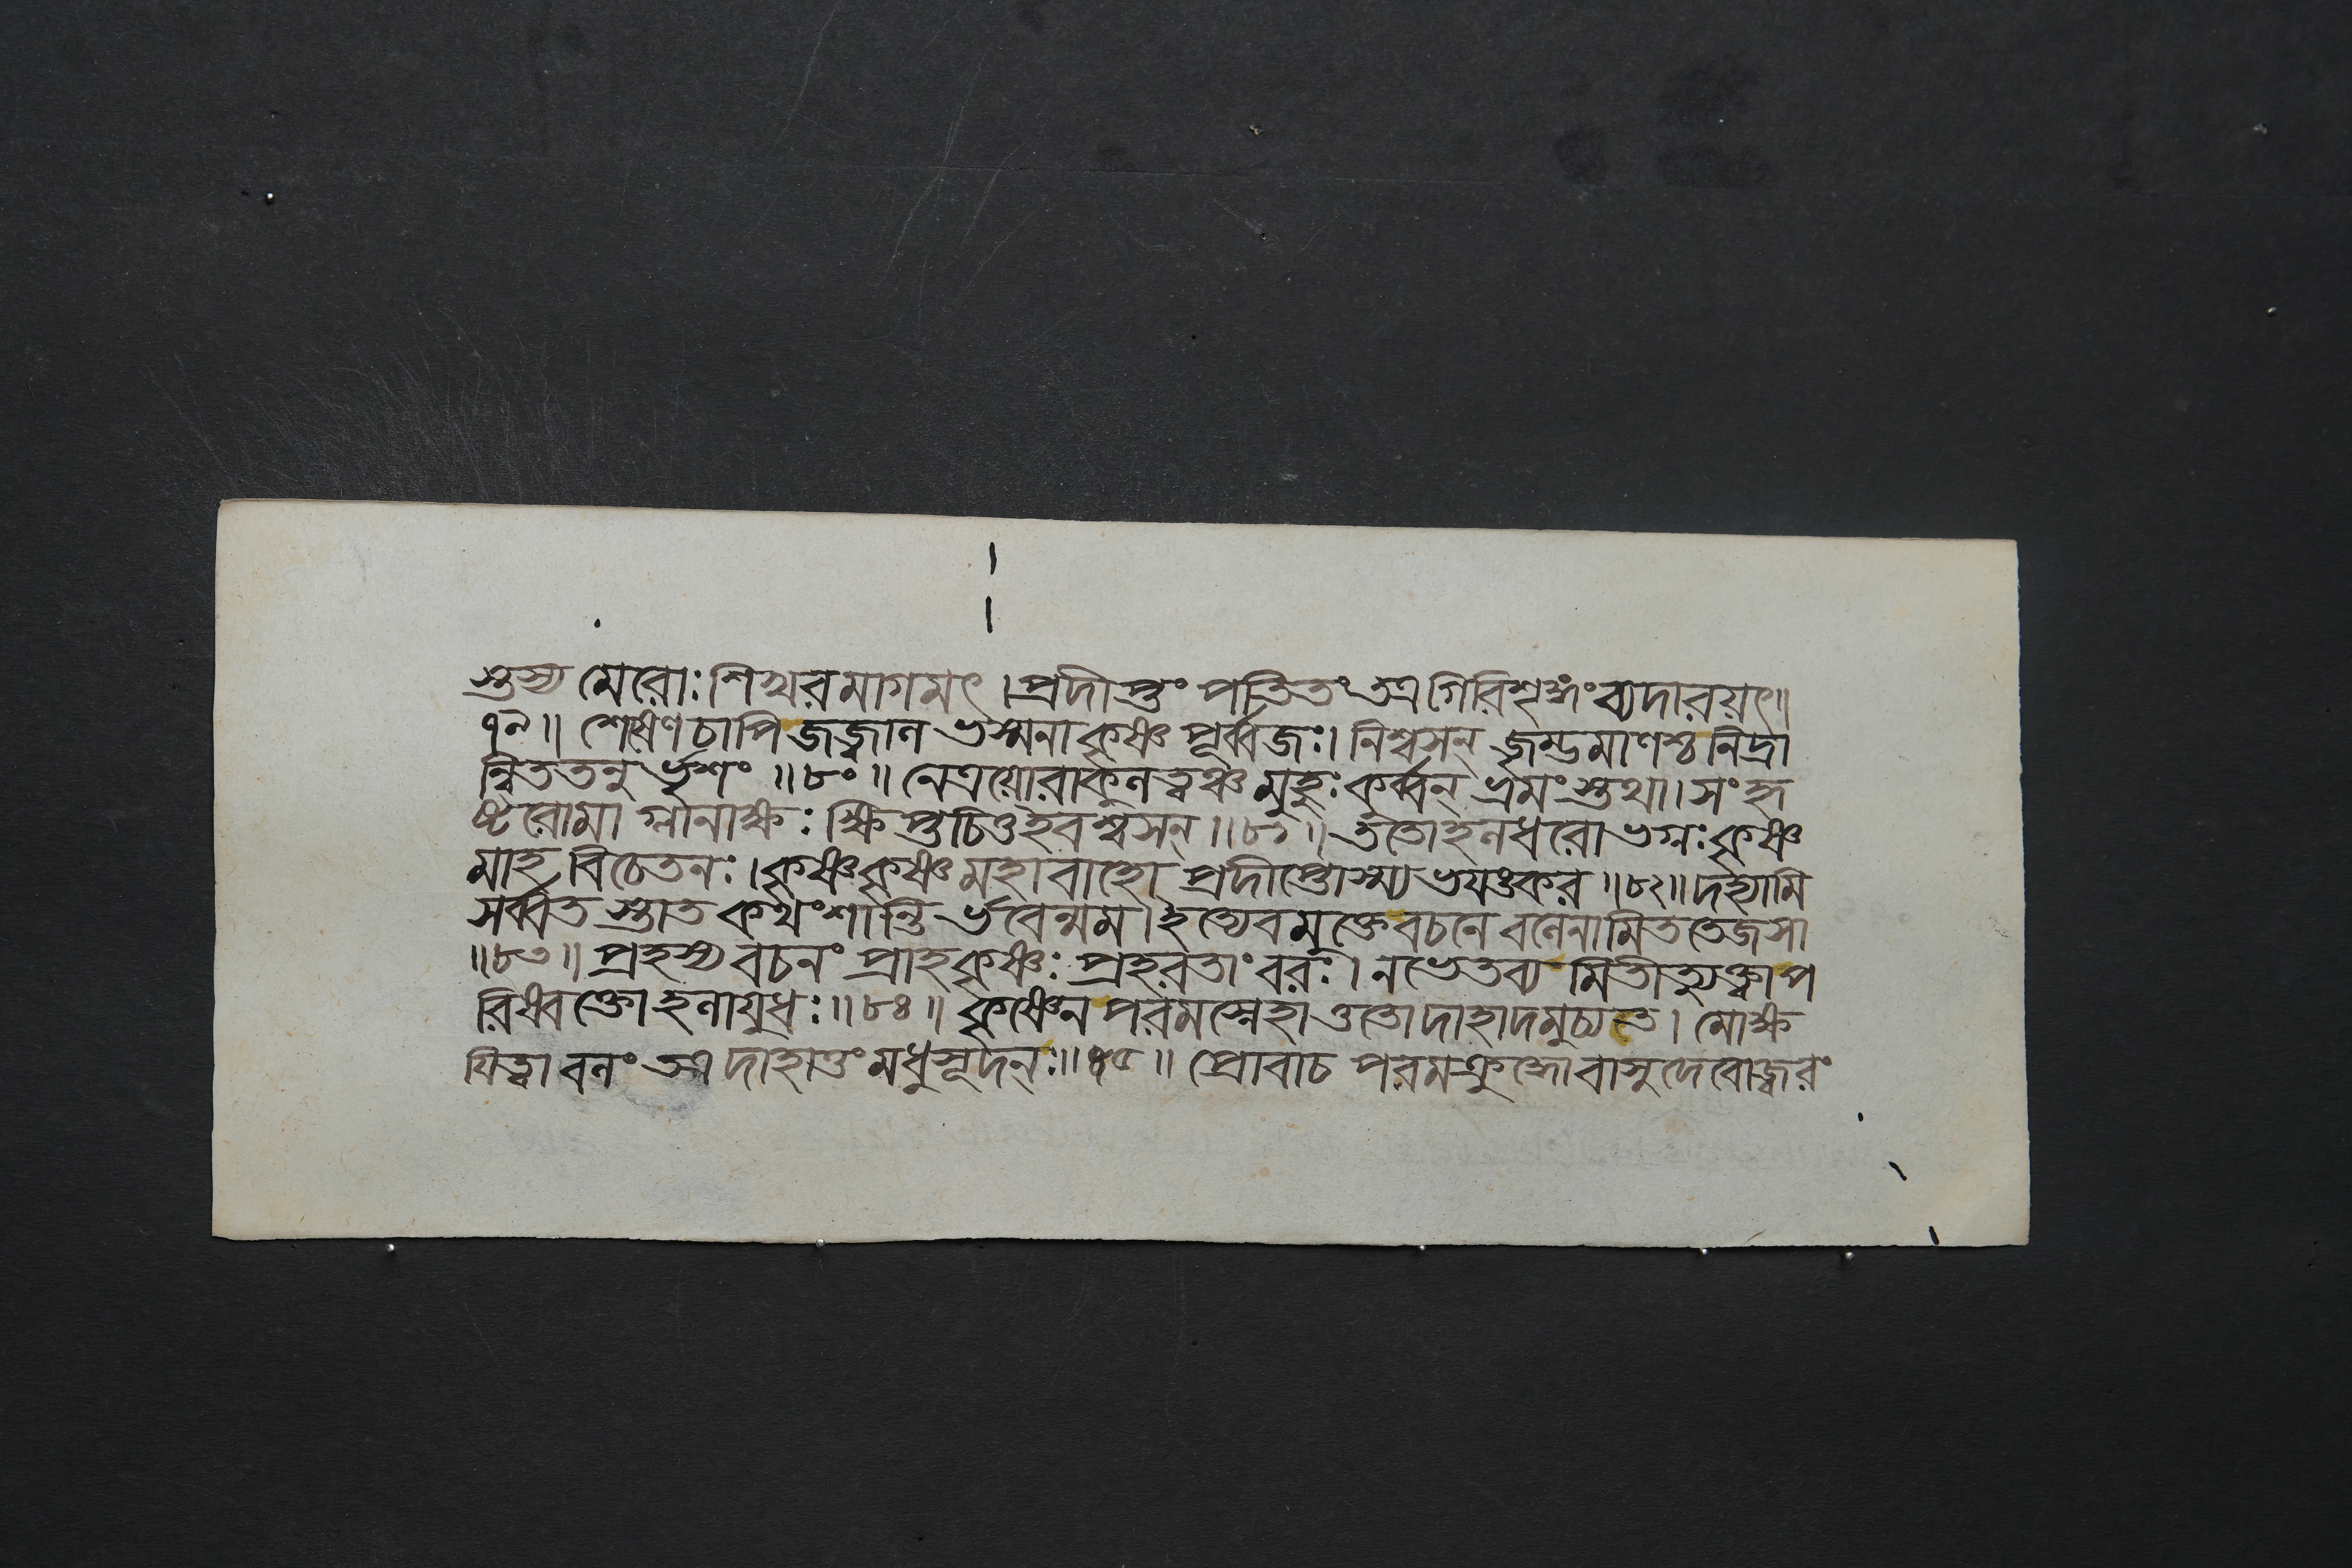 স্তস্য মেরোঃ শিখরমাগমৎ । প্রদীপ্তং পতিতং তত্র গিরিশৃঙ্গং ব্যদারয়ৎ॥
৭৯ ॥ শেষেণ চাপি জজ্বাল ভস্মনা কৃষ্ণ পূর্ব্বজঃ। নিশ্বসন্ জৃম্ভমাণশ্চ নিদ্রা
ন্বিততনু র্ভৃশং ॥ ৮০ ॥ নেত্রয়োরাকুলত্বঞ্চ মুহুঃ কুর্ব্বন্ ভ্রমংস্তথা। সংহৃ
ষ্টরোমা গ্লানাক্ষঃ ক্ষিপ্তচিত্ত ইব শ্বসন্ ॥ ৮১ ॥ ততো হলধরো ভগ্নঃ কৃষ্ণ
মাহ বিচেতনঃ । কৃষ্ণ কৃষ্ণ মহাবাহো প্রদীপ্তোস্ম্যভয়ঙ্কর ॥৮২॥ দহ্যামি
সর্ব্বত স্তাত কথং শান্তি র্ভবেন্মম । ইত্যেবমুক্তে বচনে বলেনামিততেজসা
॥ ৮৩ ॥ প্রহস্য বচনং প্রাহ কৃষ্ণঃ প্রহরতাং বরঃ । ন ভেতব্য মিতীত্যুক্ত্বা প
রিষ্বক্তো হলায়ুধঃ ॥ ৮৪ ॥ কৃষ্ণেন পরমস্নেহা ত্ততো দাহাদমুচ্যত । মোক্ষ
য়িত্বা বলং তত্র দাহাত্তং মধুসূদনঃ ॥ ৮৫ ॥ প্রোবাচ পরমক্রুদ্ধো বাসুদেবো জ্বরং